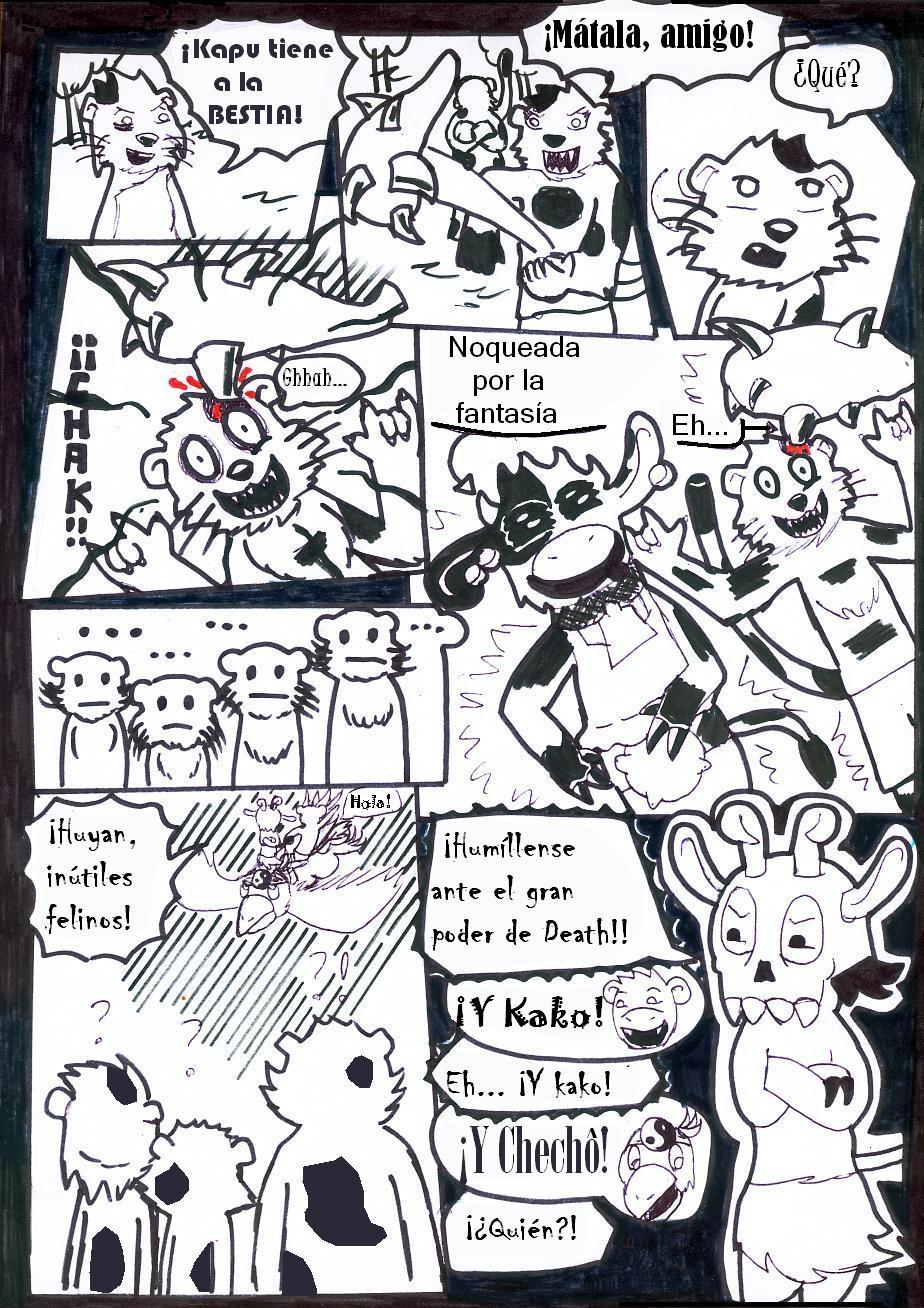 ¡Kapu tiene
a la
BESTIA!
¡Mátala, amigo!
¿Qué?
¡¡CHAK!!
Ghhah...
Noqueada
por la
fantasía
Eh...
... ... ... ...
¡Huyan,
inútiles
felinos!
Hola!
? ? ?!
¡Humíllense
ante el gran
poder de Death!!
¡Y Kako!
Eh... ¡Y kako!
¡Y Chechô!
¡¿Quién?!